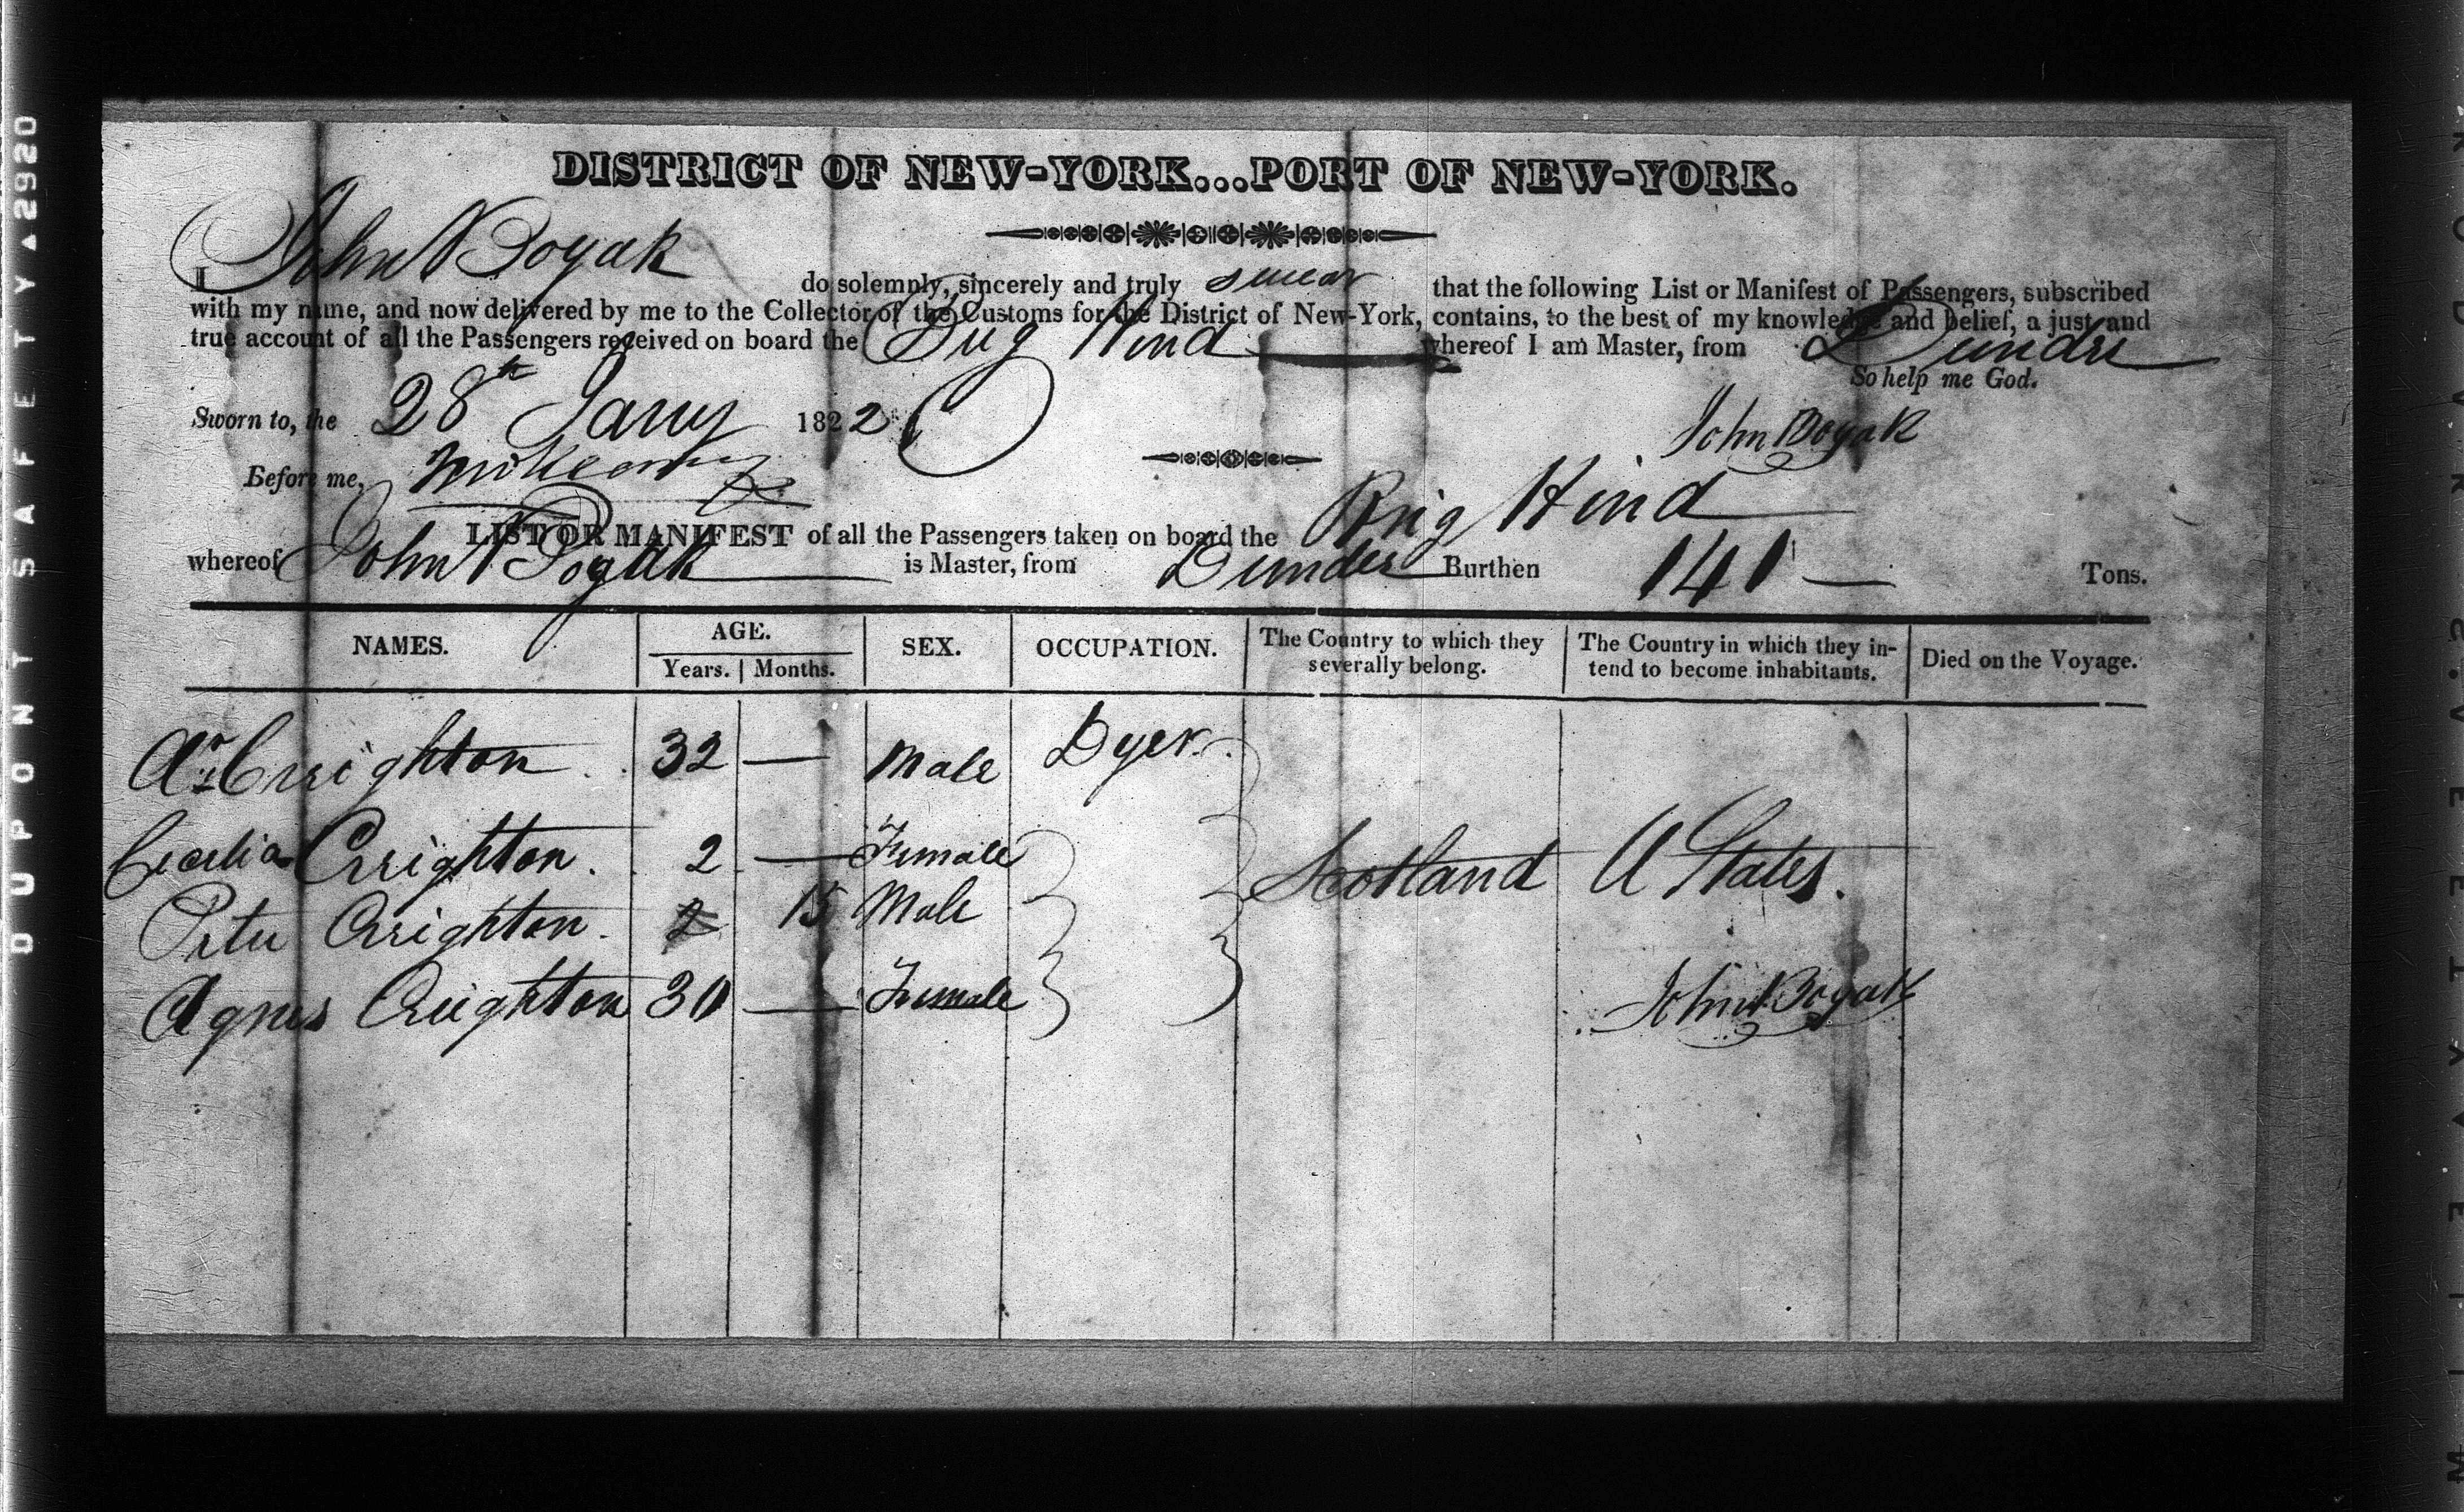 DISTRICT OF NEW-YORK...PORT OF NEW-YORK.
I John Boyak do solemnly, sincerely and truly swear that the following List or Manifest of Passengers, subscribed
with my name, and now delivered by me to the Collector of the Customs for the District of New-York, contains, to the best of my knowledge and belief, a just and
true account of all the Passengers received on board the Brig Hind whereof I am Master, from Dundee
So help me God.
Sworn to, the 28th Jany 1822
John Boyak
Before me,
LIST OR MANIFEST of all the Passengers taken on board the Brig Hind
whereof John Boyak is Master, from Dundee Burthen 141 Tons.
NAMES. AGE. Years. Months. SEX. OCCUPATION. The Country to which they severally belong. The Country in which they intend to become inhabitants. Died on the Voyage.
Crighton 32 — Male Dyer
Cecelia Crighton 2 — Female Scotland U States.
Peter Crighton 15 Male
Agnes Crighton 30 — Female
John Boyak
DUPONT SAFETY▲2920